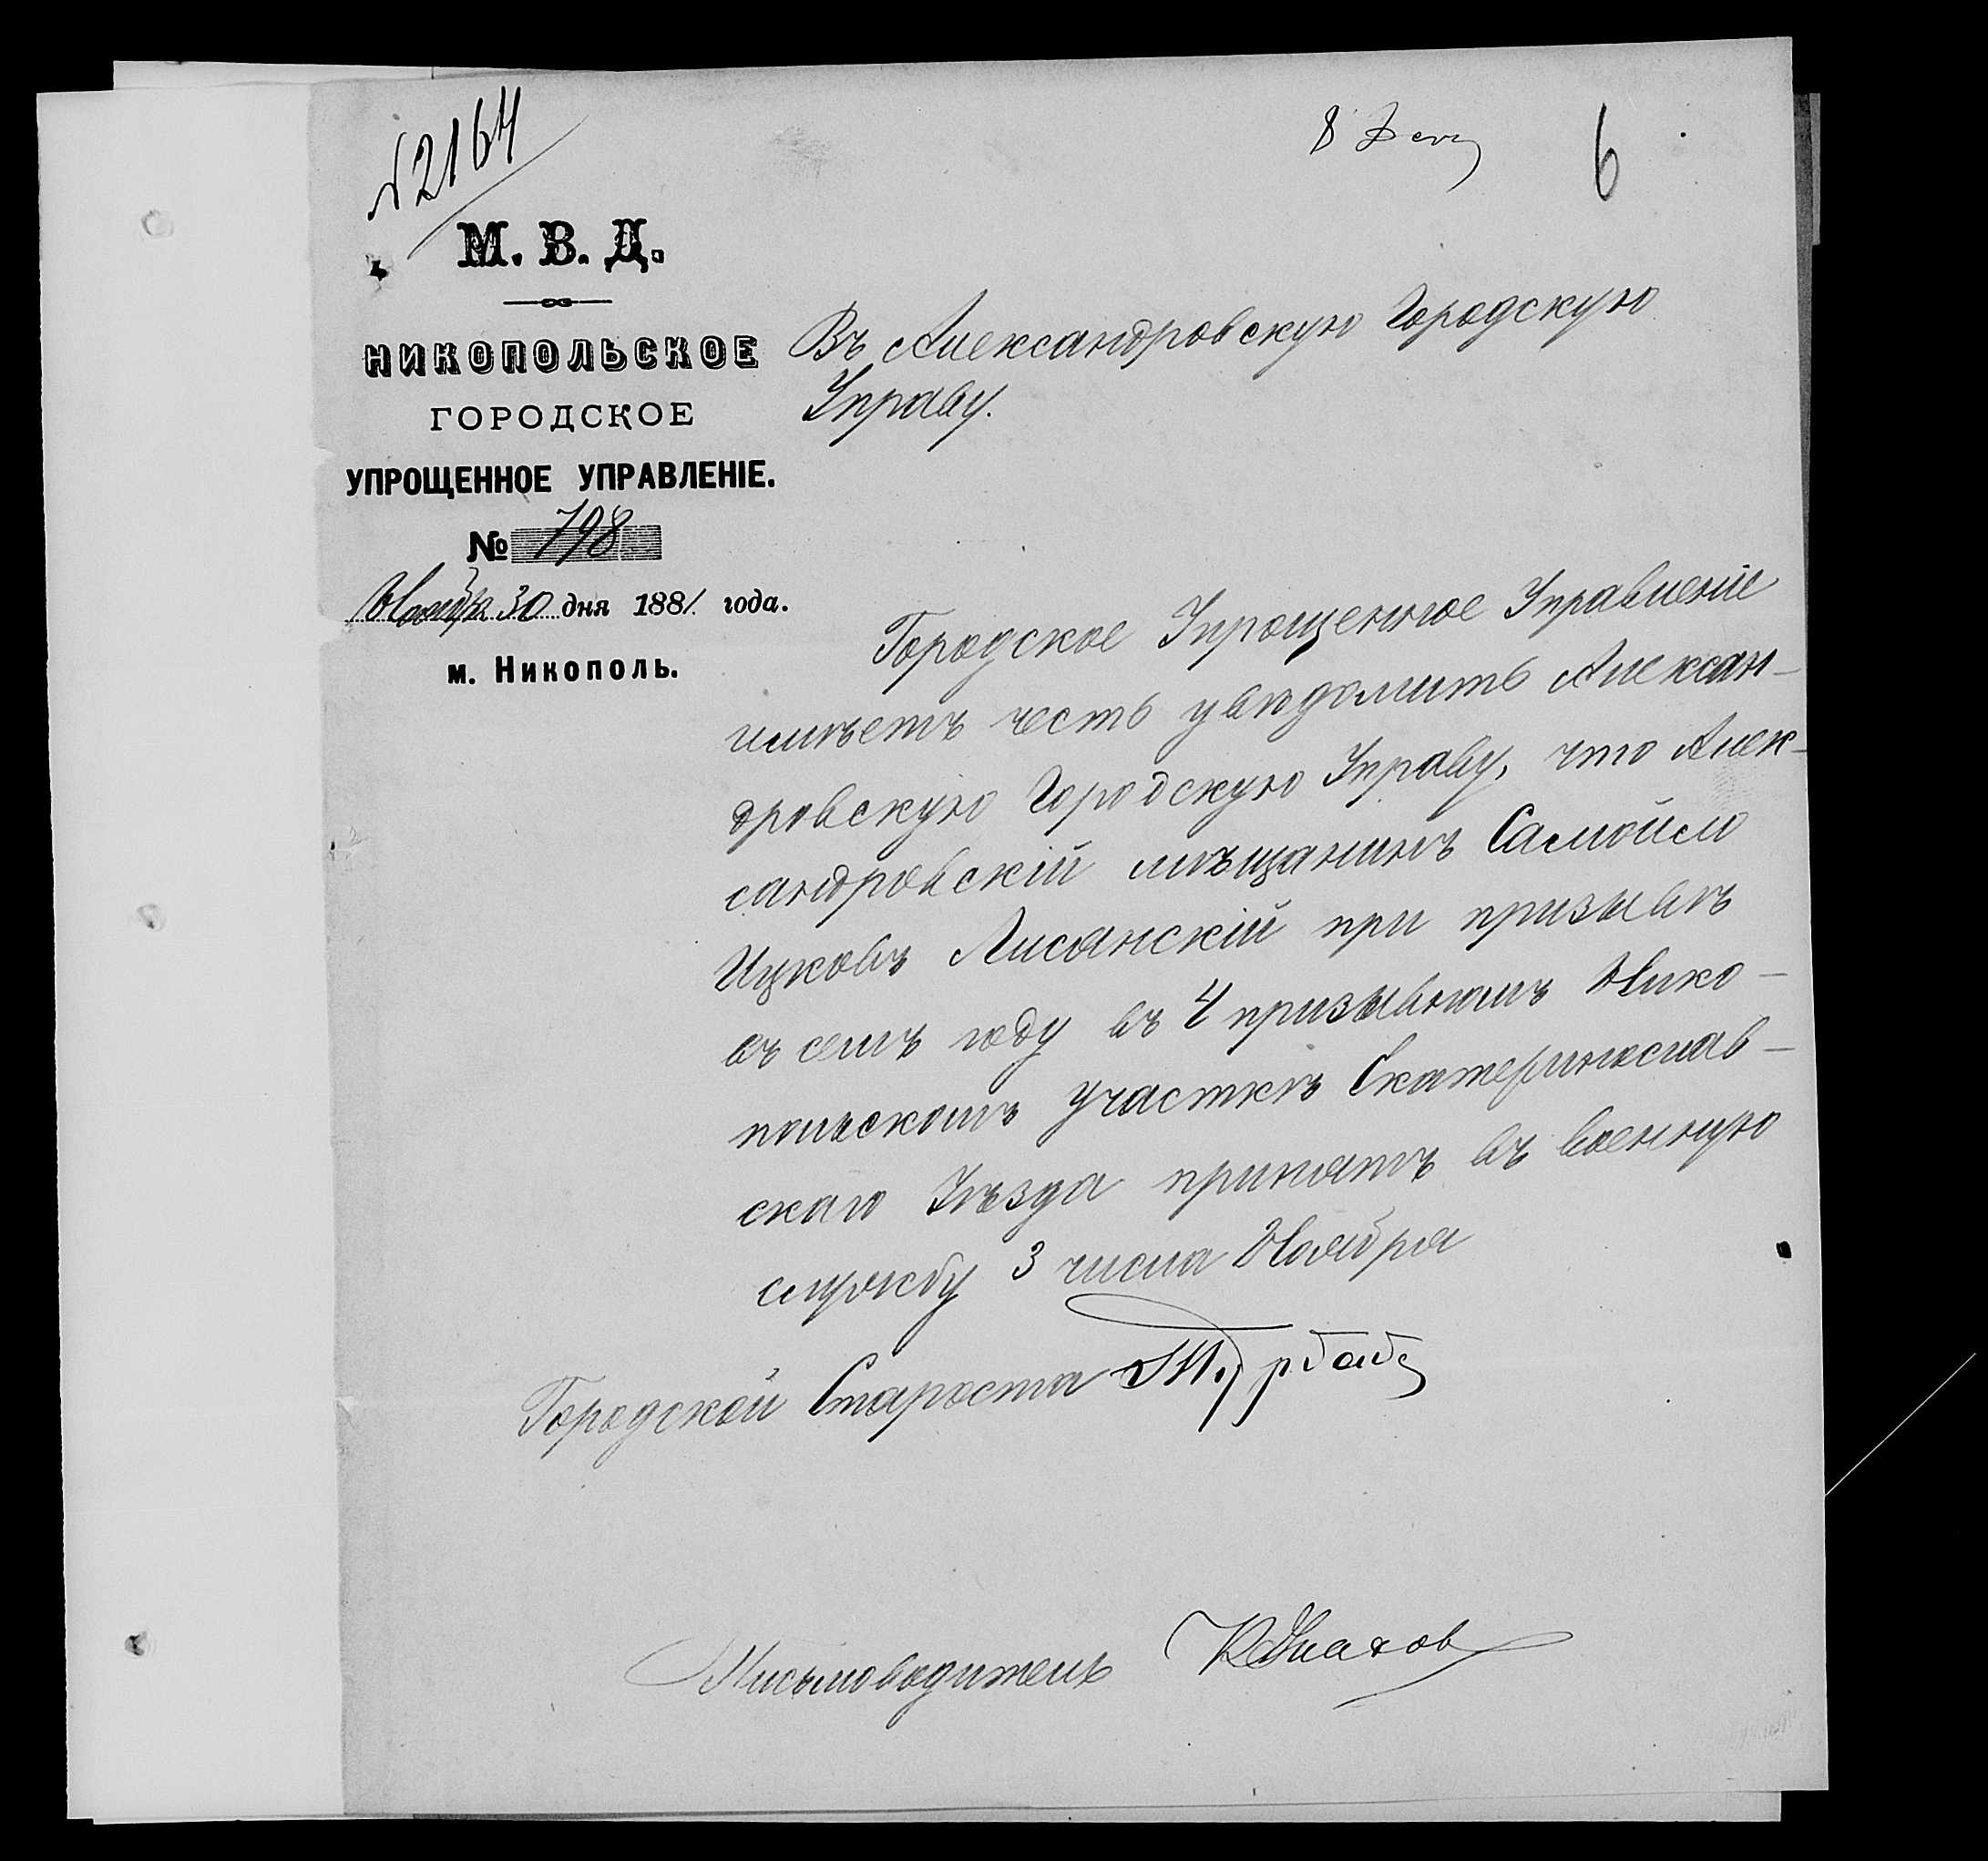 № 2164
8 Дек
6
М. В. Д.
НИКОПОЛЬСКОЕ
ГОРОДСКОЕ
УПРОЩЕННОЕ УПРАВЛЕНІЕ.
№ 798
Ноября 30 дня 1881 года.
м. Никополь.
Въ Александровскую Городскую
Управу.
Городское Упрощенное Управленіе
имѣетъ честь увѣдомить Александ-
ровскую Городскую Управу, что Алек-
сандровскій мѣщанинъ Самойло
Ицковъ Лисянскій при призывѣ
въ семъ году въ 4 призывномъ Нико-
польскомъ участкѣ Екатеринослав-
скаго Уѣзда принятъ въ военную
службу 3 числа Ноября
Городской Староста
Письмоводитель